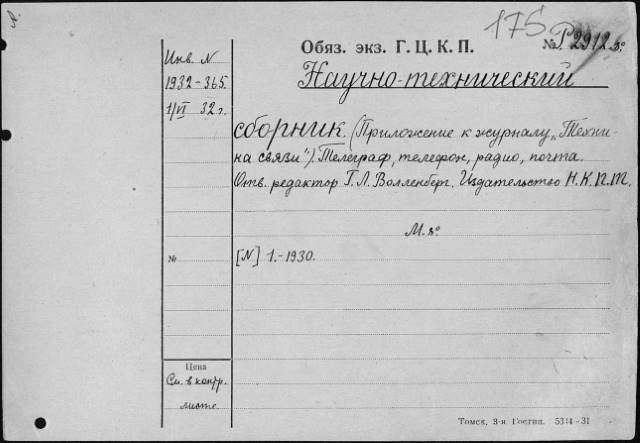 175
Обяз. экз. Г. Ц. К. П.
№ 2912 8°
Инв. N
1932-365.
1/VI 32 г.
Научно-технический
сборник. (Приложение к журналу „Техни-
ка связи“). Телеграф, телефон, радио, почта.
Отв. редактор Г. Л. Волленберг. Издательство Н. К. П. и Т.
М. 8°
№
[N] 1.-1930.
Цена
См. в контр.
листе.
Томск, 3-я Гостип. 5314-31